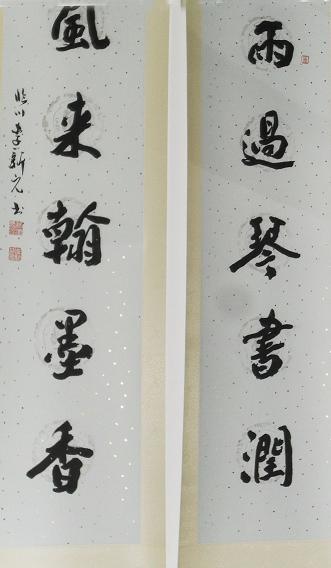 雨過琴書潤
風来翰墨香
臨川李新元书